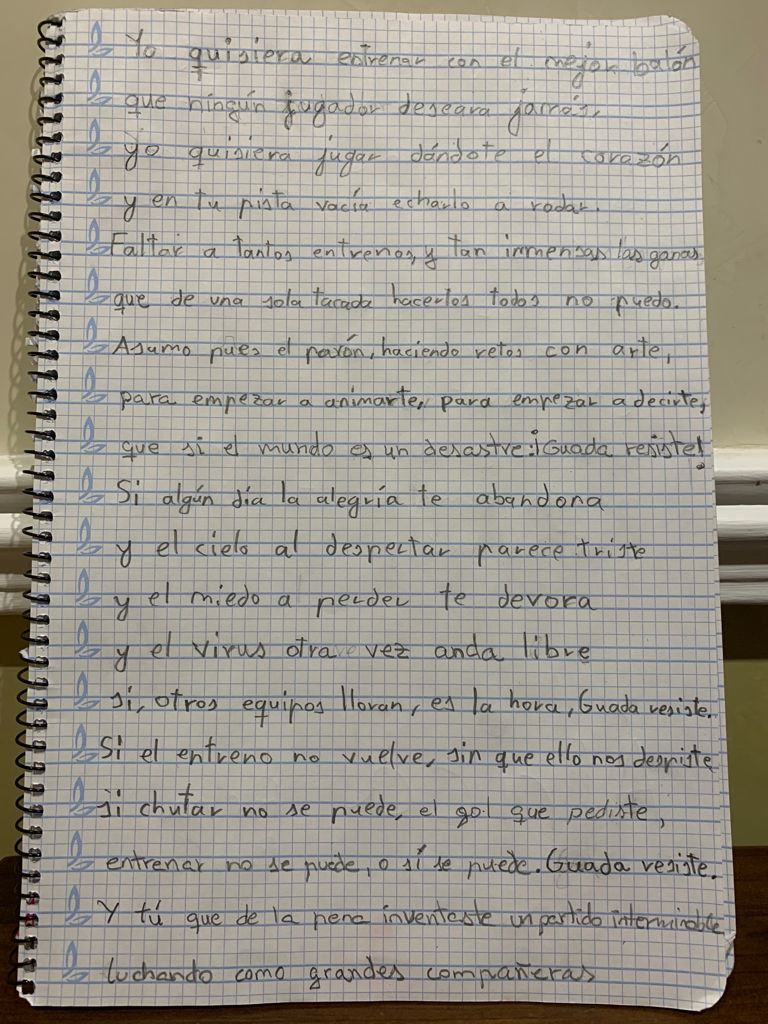 Yo quisiera entrenar con el mejor balón
que ningún jugador deseara jamás,
yo quisiera jugar dándote el corazón
y en tu pista vacía echarlo a rodar.
Faltar a tantos entrenos, y tan inmensas las ganas
que de una sola tacada hacerlos todos no puedo.
Asumo pues el parón, haciendo retos con arte,
para empezar a animarte, para empezar a decirte,
que si el mundo es un desastre: ¡Guada resiste!
Si algún día la alegría te abandona
y el cielo al despertar parece triste
y el miedo a perder te devora
y el virus otra vez anda libre
si, otros equipos lloran, es la hora, Guada resiste.
Si el entreno no vuelve, sin que ello nos despiste
si chutar no se puede, el gol que pediste,
entrenar no se puede, o sí se puede. Guada resiste.
Y tú que de la pena inventaste un partido interminable
luchando como grandes compañeras